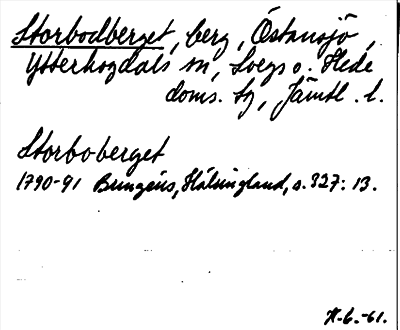 Storbodberget, berg, Östansjö,
Ytterhogdals sn, Svegs o. Hede
doms. tg, Jämtl. l.
Storboberget
1790-91 Bungéns, Hälsingland, s. 327: 13.
-6.-61.